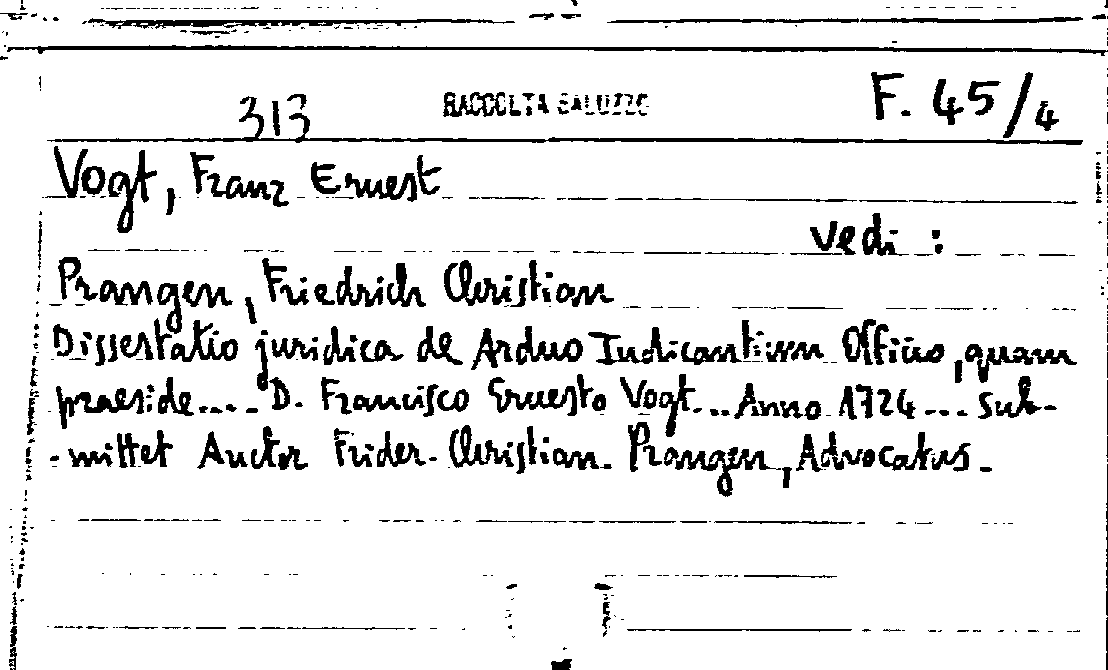 313 RACCOLTA SALUZZO F. 45/4
Vogt, Franz Ernest
vedi :
Prangen, Friedrich Christian
Dissertatio juridica de Arduo Iudicantium Officio, quam
praeside.... D. Francisco Ernesto Vogt... Anno 1724... sub-
-mittet Auctor Frider. Christian. Prangen, Advocatus.